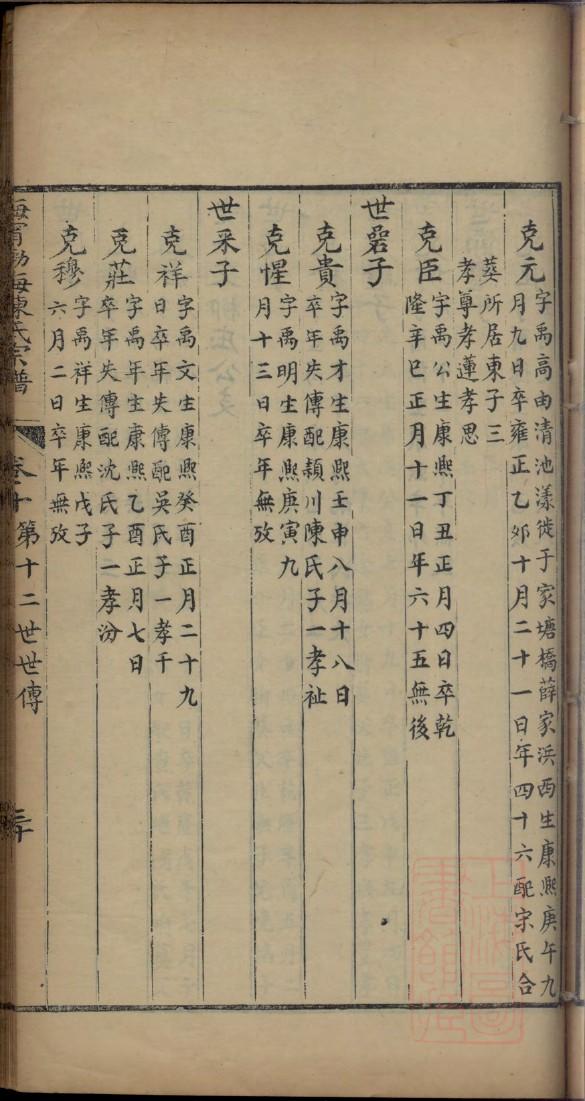 克元字禹高由清池漾徙于家塘橋薛家浜西生康熙庚午九
月九日卒雍正乙邜十月二十一日年四十六配宗氏合
葵所居東子三
孝尊孝蓮孝思
克臣字禹公生康熙丁丑正月四日卒乾
隆辛巳正月十一日年六十五無後
世磬子
克貴字禹才生康熙壬申八月十八日
卒年失傳配頴川陳氏子一孝祉
克惺字禹明生康熙庚寅九
月十三日卒年無攷
世采子
克祥字禹文生康熙癸酉正月二十九
日卒年失傳配吳氏子一孝千
克莊字禹年生康熙乙酉正月七日
卒年失傳配沈氏子一孝汾
克穆字禹祥生康熙戊子
六月二日卒年無攷
海甯渤海陳氏宗譜
卷十第十二世世傳
三十